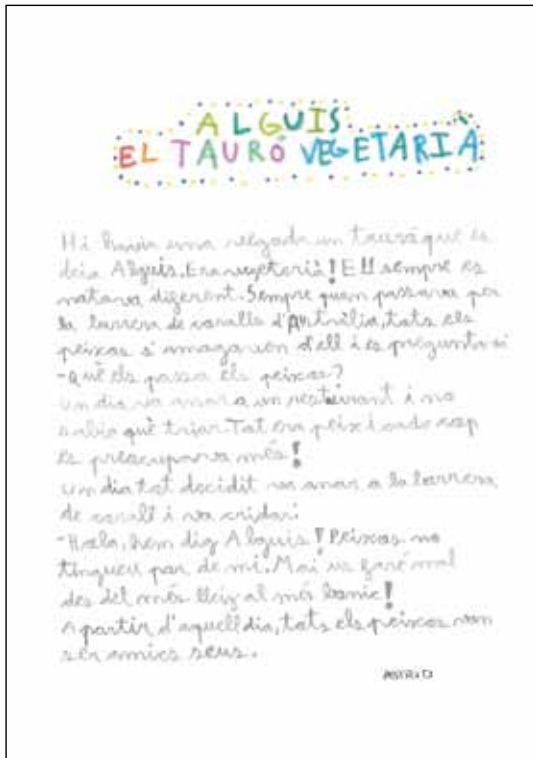 ALGUIS
EL TAURÓ VEGETARIÀ
Hi havia una vegada un tauró que es
deia Alguis. Era vegetarià! Ell sempre es
notava diferent. Sempre quan passava per
la barrera de coralls d'Autràlia, tots els
peixos s'amagaven d'ell i es preguntava
-Què els passa els peixos?
Un dia va anar a un restaurant i no
sabia què triar. Tot era peix i cada cop
es preocupava més!
Un dia tot decidit va anar a la barrera
de corall i va cridar:
-Hola, hem dig Alguis! Peixos no
tingueu por de mi. Mai us faré mal
des del més lleig al més bonic!
A partir d'aquell dia, tots els peixos van
ser amics seus.
ASTRID